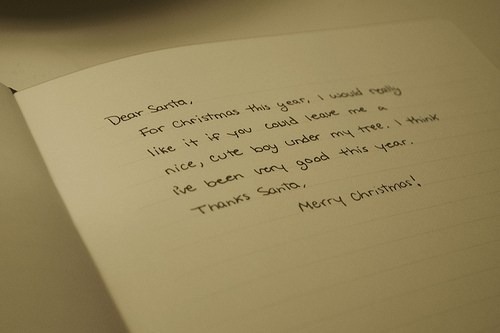 Dear Santa,
For Christmas this year, I would really
like it if you could leave me a
nice, cute boy under my tree. I think
i've been very good this year.
Thanks Santa,
Merry Christmas!